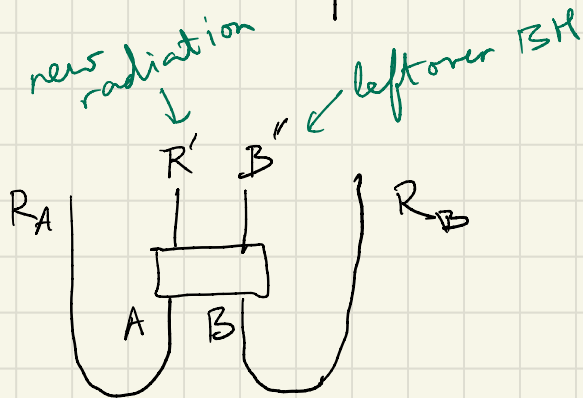 new radiation
leftover BH
R' B''
R_A R_B
A B